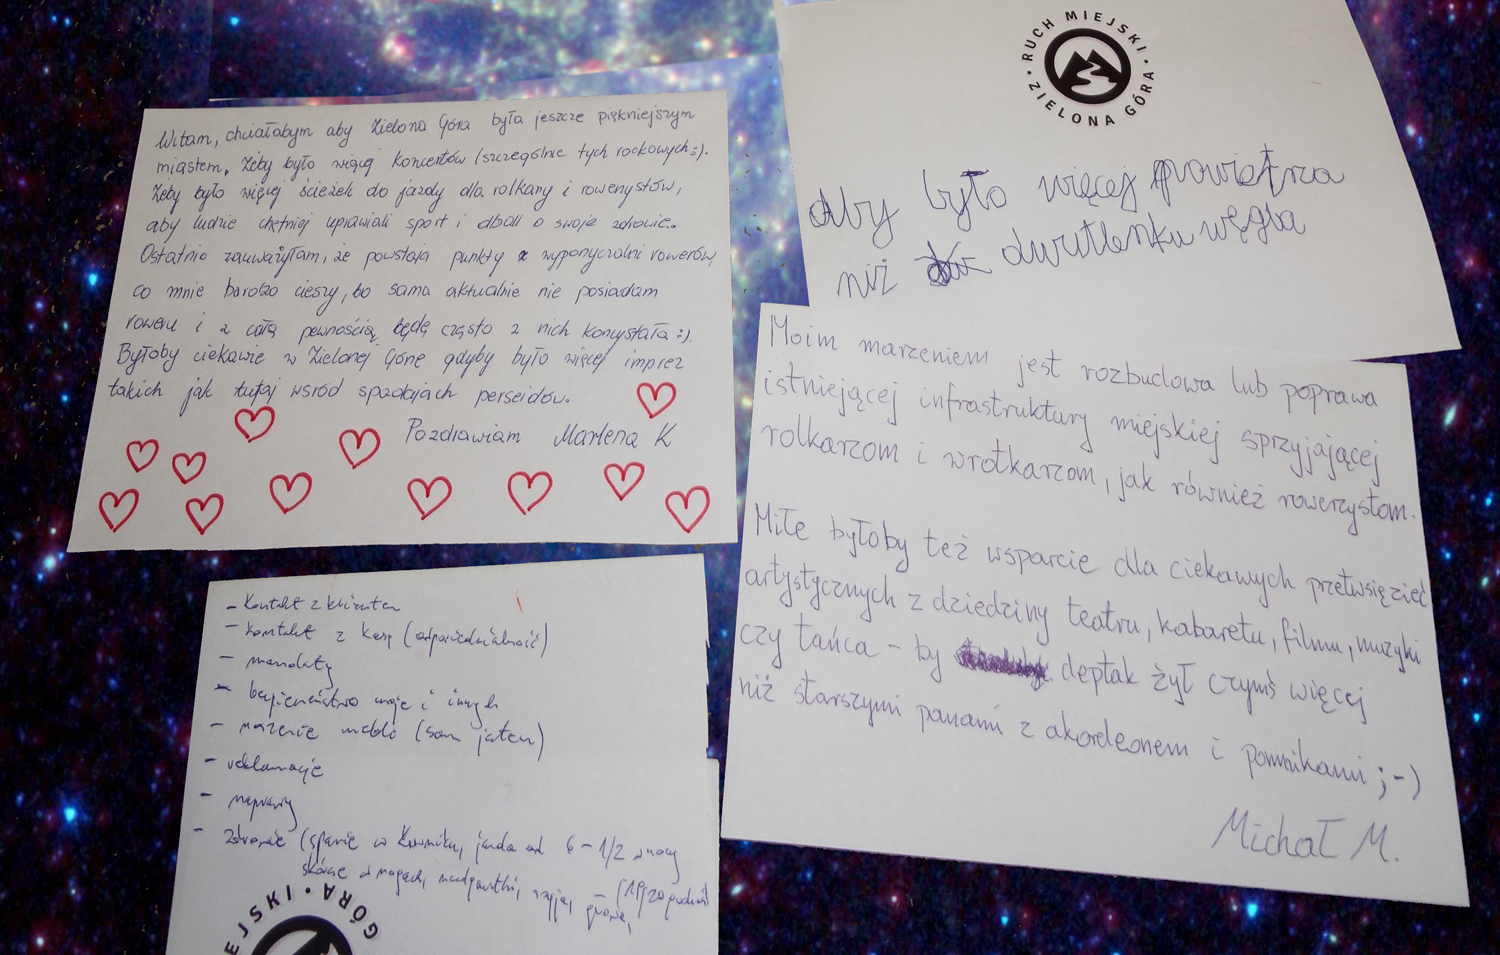 Witam, chciałabym aby Zielona Góra była jeszcze piękniejszym
miastem. Żeby było więcej koncertów (szczególnie tych rockowych:).
Żeby było więcej ścieżek do jazdy dla rolkarzy i rowerzystów,
aby ludzie chętniej uprawiali sport i dbali o swoje zdrowie.
Ostatnio zauważyłam, że powstają punkty wypożyczalni rowerów,
co mnie bardzo cieszy, bo sama aktualnie nie posiadam
roweru i z całą pewnością będę często z nich korzystała :).
Byłoby ciekawie w Zielonej Górze gdyby było więcej imprez
takich jak tutaj wsród spadających perseidów.
Pozdrawiam Marlena K
RUCH MIEJSKI
ZIELONA GÓRA
Aby było więcej powietrza
niż dwutlenku węgla
Moim marzeniem jest rozbudowa lub poprawa
istniejącej infrastruktury miejskiej sprzyjającej
rolkarzom i wrotkarzom, jak również rowerzystom.
Miłe byłoby też wsparcie dla ciekawych przetwsięzięć
artystycznych z dziedziny teatru, kabaretu, filmu, muzyki
czy tańca - by deptak żył czymś więcej
niż starszymi panami z akordeonem i pomnikami ;-)
Michał M.
- kontakt z klientem
- kontakt z kasą (odpowiedzialność)
- mandaty
- bezpieczeństwo moje i innych
- noszenie mebli (sam jestem)
- reklamacje
- naprawy
- zdrowie (spanie w , jazda od 6 - 1/2 w nocy